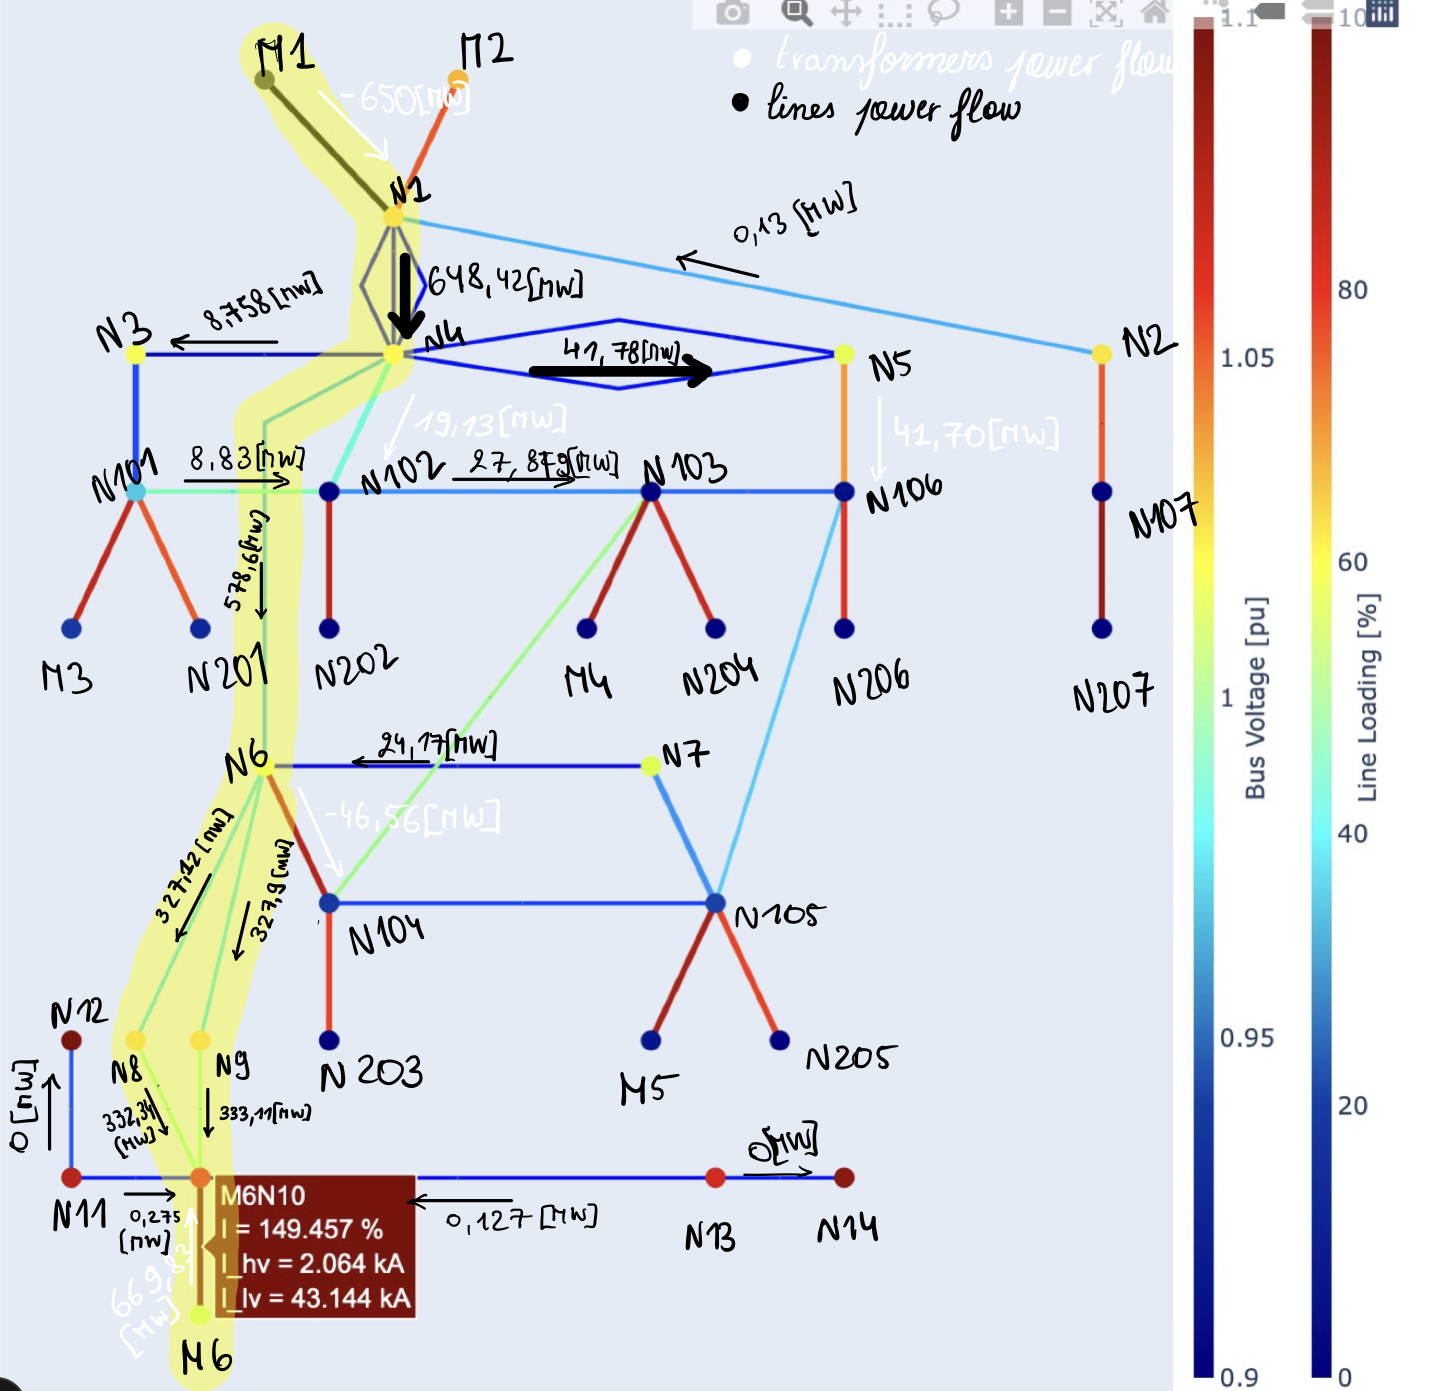 M1
M2
-650[MW]
transformers power flow
lines power flow
N1
0,13 [MW]
8,758[MW]
648,42[MW]
N3
N4
41,78[MW]
N5
N2
19,13[MW]
41,70[MW]
N101
8,83[MW]
N102
N103
N106
N107
578,6[MW]
M3
N201
N202
M4
N204
N206
N207
N6
24,17[MW]
N7
-46,56[MW]
327,12[MW]
327,9[MW]
N104
N105
N12
N8
N9
N203
M5
N205
0[MW]
332,34
[MW]
333,11[MW]
0[MW]
N11
0,275
[MW]
0,127 [MW]
N13
N14
[MW]
M6N10
I = 149.457 %
I_hv = 2.064 kA
I_lv = 43.144 kA
M6
1.1
1.05
1
0.95
0.9
Bus Voltage [pu]
80
60
40
20
0
Line Loading [%]